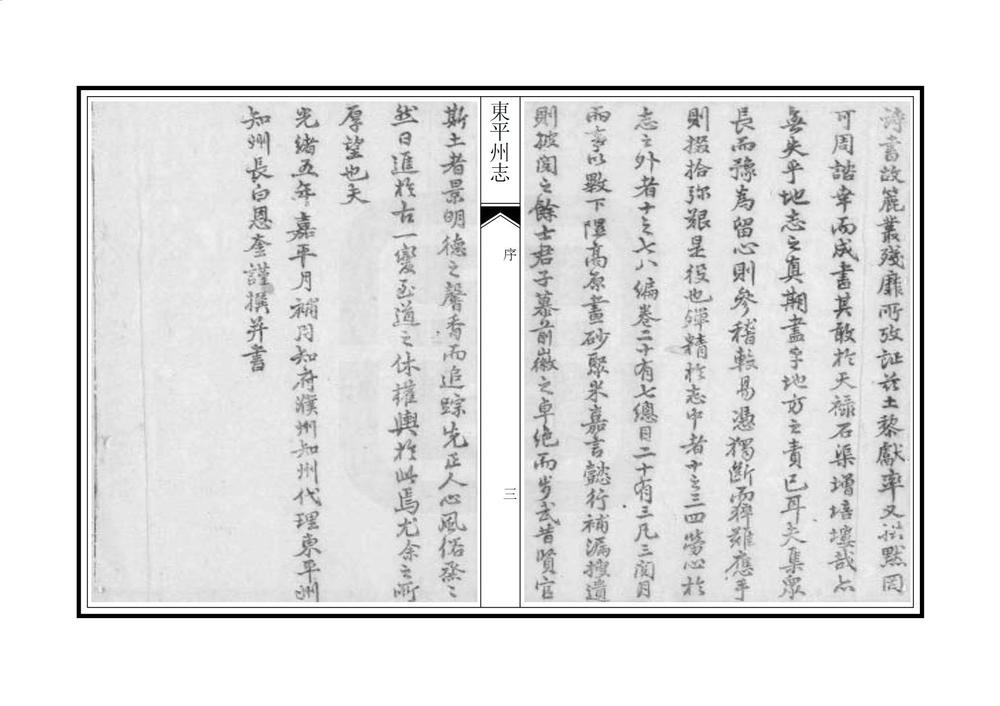 詩書故簏叢殘靡所攷證茲土黎獻率又淟默罔
可周諮幸而成書其敢於天祿石渠增培塿哉亦
無失乎地志之真期盡乎地方之責已耳夫集眾
長而豫為留心則參稽較易憑獨斷而猝難應手
則掇拾弥艱是役也殫精於志中者十之三四勞心於
志之外者十之七八編卷二十有七總目二十有三凡三閱月
而事以數下隰高原畫砂聚米嘉言懿行補漏搜遺
則披閱之餘士君子慕前徽之卓絕而步武昔賢官
東平州志
序
三
斯土者景明德之馨香而追踪先正人心風俗烝〻
然日進於古一變至道之休權輿於此焉尤余之所
厚望也夫
光緒五年嘉平月補用知府濮州知州代理東平州
知州長白恩奎謹撰并書